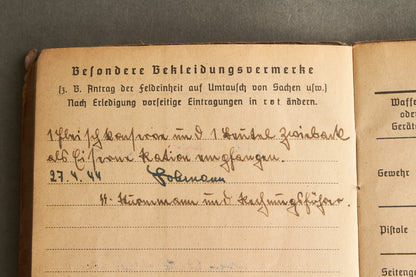 Besondere Bekleidungsvermerke
(z. B. Antrag der Feldeinheit auf Umtausch von Sachen usw.)
Nach Erledigung vorseitige Eintragungen in rot ändern.
1 Fleischkonserve und 1 Beutel Zwieback
als Eiserne Ration empfangen.
27. 4. 44
ᛋᛋ-Sturmmann und Rechnungsführer.
Waff
oder
Gerät
Gewehr
Pistole
Seiteng